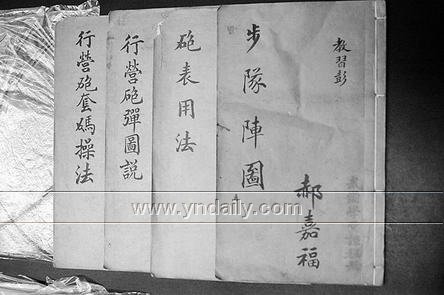 教習彭
步隊陣圖
郝嘉福
砲表用法
行營砲彈圖説
行營砲套媽操法
www.yndaily.com